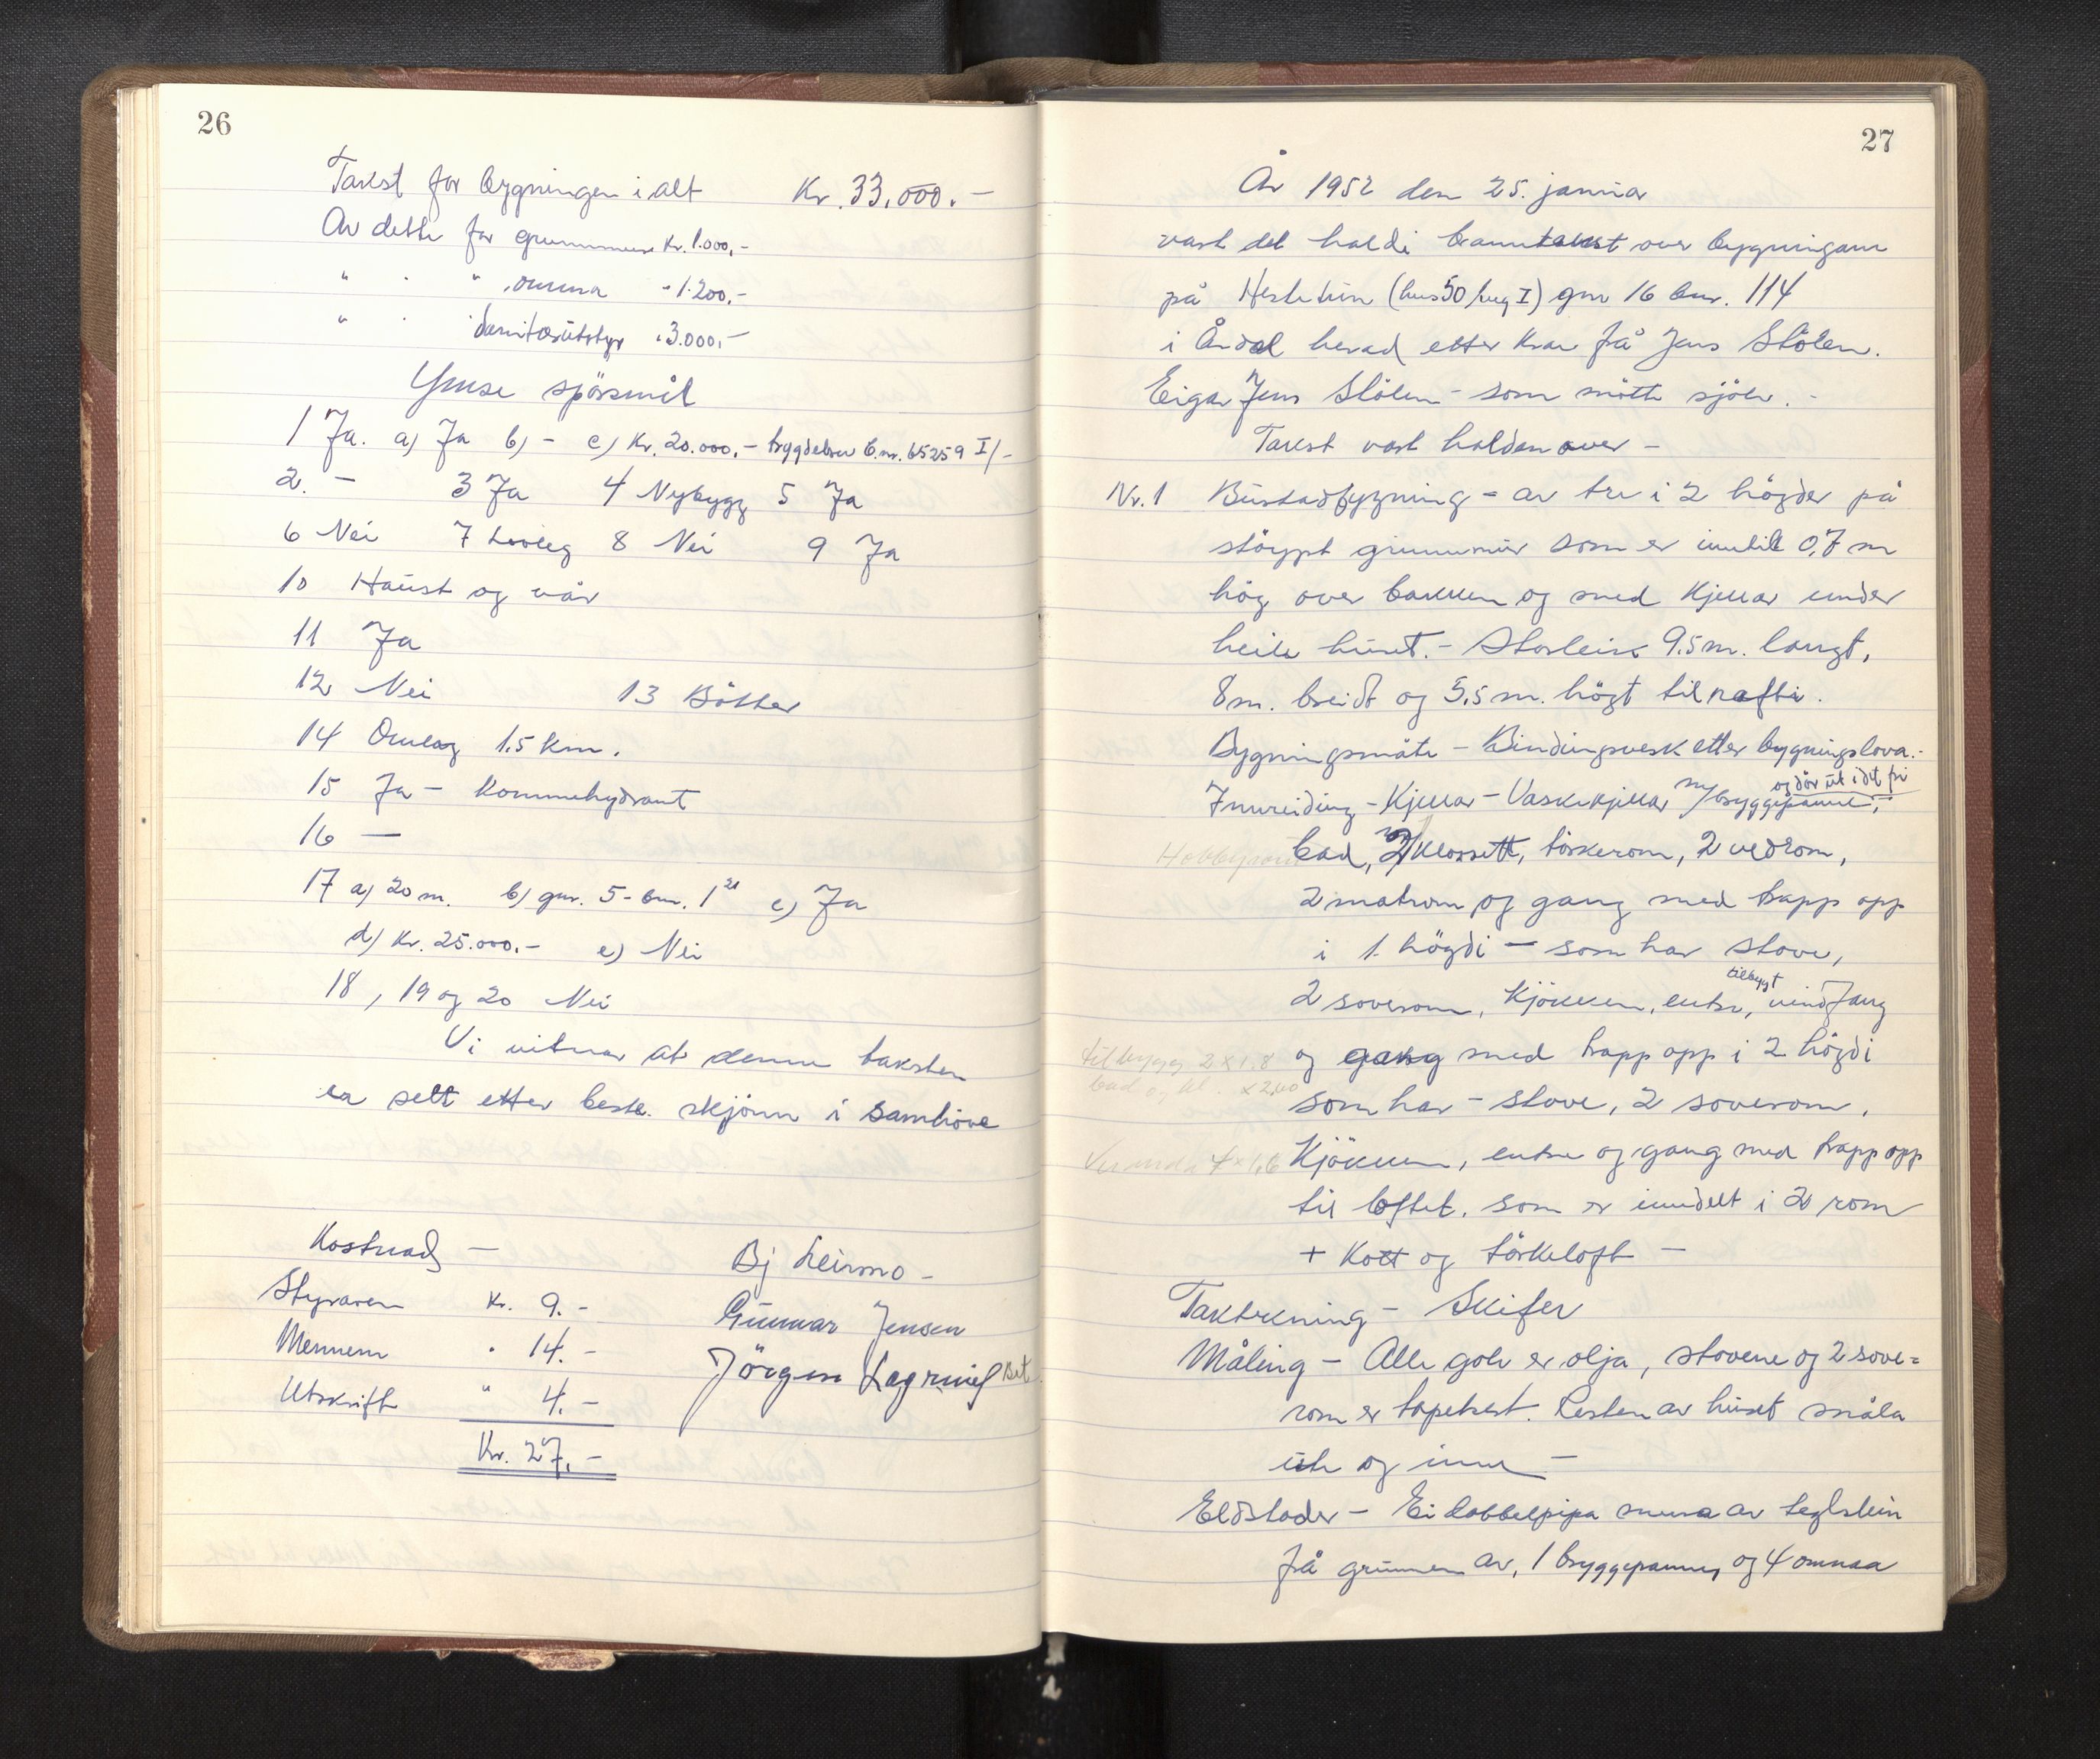 26
Takst for bygningen i alt Kr. 33.000.-
Av dette for grunnmur Kr. 1.000,-
" . " omna " 1.200,-
" . " Sanitærutstyr " 3.000,-
Ymse spörsmål
1 Ja. a) Ja b) - c) Kr. 20.000.- bygdebrev b.nr. 65259 I/-
2. - 3 Ja 4 Nybygg 5 Ja
6 Nei 7 Lovleg 8 Nei 9 Ja
10 Haust og vår
11 Ja
12 Nei 13 Bötter
14 Omlag 1.5 km.
15 Ja - Kommehydrant
16 -
17 a) 20 m. b) gnr. 5 - bnr. 1 21 c) Ja
d) Kr. 25.000.- e) Nei
18, 19 og 20 Nei
Vi vitnar at denne taksten
er sett etter beste skjönn i samhöve
Kostnad -
Styraren Kr. 9.-
Mennene " 14.-
Utskrift " 4.-
Kr. 27.-
Bj Leirmo -
Gunnar Jensen
Jörgen Lægreid
27
År 1952 den 25. januar
vart det haldi branntakst over bygningane
på (hus 50 byg I) gnr 16 bnr. 114
i Årdal herad etter krav frå Jens Stölen.
Eigar Jens Stölen - som mötte sjölv. -
Takst vart halden over -
Nr. 1 Bustadbygning - av tre i 2 högder på
stöypt grunnmur som er inntil 0,7 m
hög over bakken og med Kjellar under
heile huset. - Storleik 9.5 m. langt,
8 m. breidt og 5,5 m. högt til rafti.
Bygningsmåte - Bindingsverk etter bygningslova. -
og dör ut i det fri
Innreiding - Kjellar - Vaskekjellar m/bryggepanne,
Hobbyrom bad, m/klossett, törkerom, 2 vedrom,
2 matrom og gang med trapp opp
i 1. högdi - som har stove,
tilbygt
2 soverom, Kjökken, entre, vindfang
tilbygg 2 x 1.8 og gang med trapp opp i 2 högdi
bad og kl. x 2,00
som har - stove, 2 soverom,
Veranda 4 x 1,6 Kjökken, entre og gang med trapp opp
til loftet. som er inndelt i 2 rom
+ Kott og törkeloft -
Taktekning - Skifer
Måling - Alle golv er olja, stovene og 2 sove=
rom er tapetsert. Resten av huset måla
ute og inne -
Eldstader - Ei dobbelpipa mura av teglstein
frå grunnen av, 1 bryggepanne, og 4 omnaa